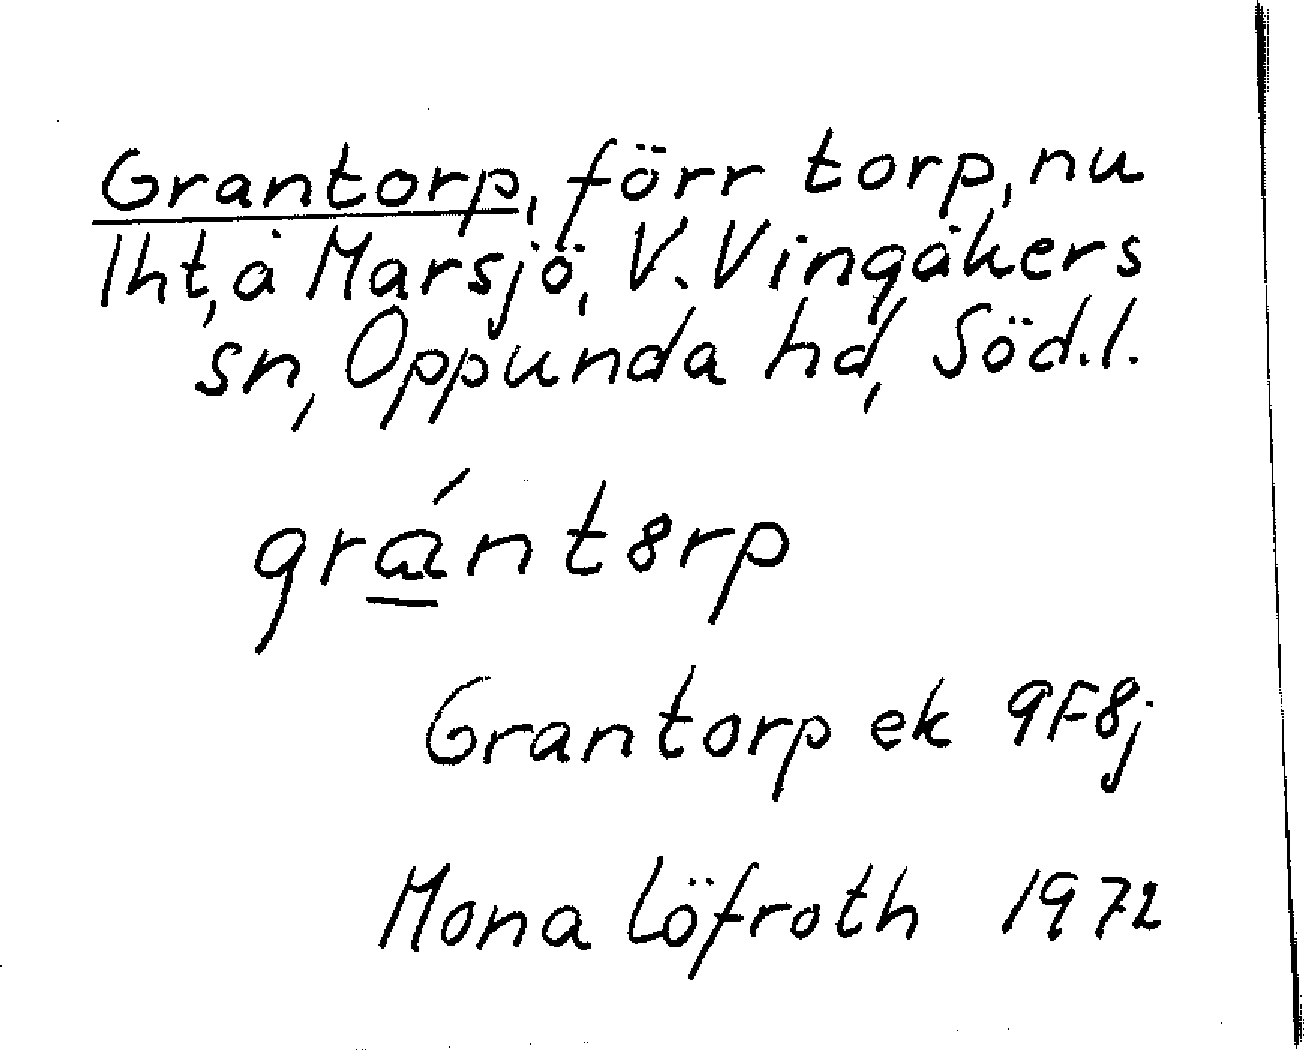 Grantorp, förr torp, nu
lht, å Marsjö, V. Vingåkers
sn, Oppunda hd, Söd.l.
grántȣrp
Grantorp ek 9F8j
Mona Löfroth 1972